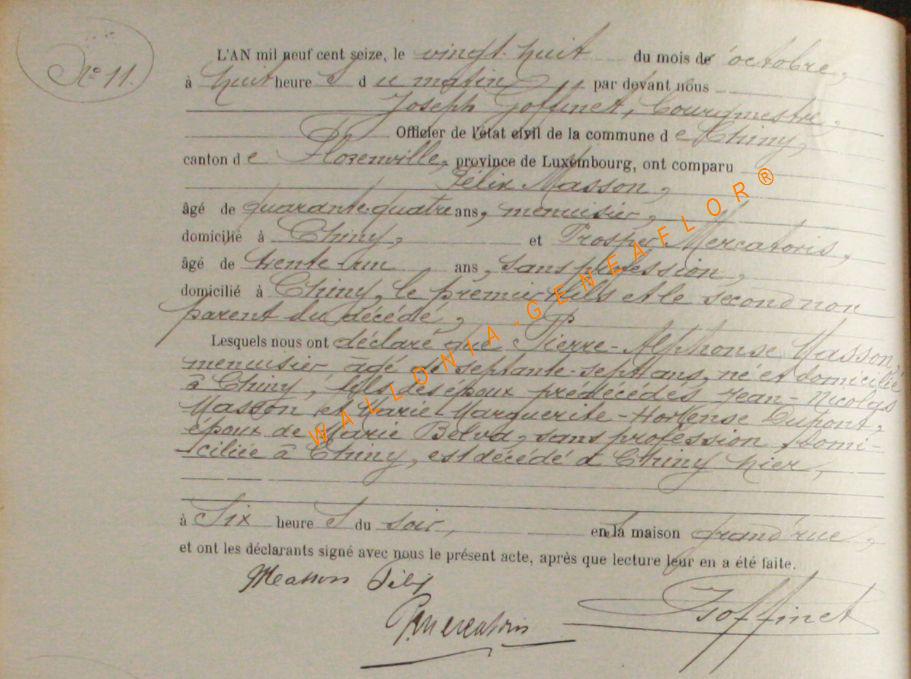 N° 11.
L'AN mil neuf cent seize, le vingt-huit du mois de octobre,
à huit heure s du matin par devant nous
Joseph Goffinet, Bourgmestre,
Officier de l'état civil de la commune de Chiny,
canton de Florenville, province de Luxembourg, ont comparu
Félix Masson,
âgé de quarante-quatre ans, menuisier,
domicilié à Chiny, et Prosper Mercatoris,
âgé de trente-un ans, sans profession,
domicilié à Chiny, le premier fils et le second non
parent du décédé,
Lesquels nous ont déclaré que Pierre-Alphonse Masson,
menuisier âgé de septante-sept ans, né et domicilié
à Chiny, fils des époux prédécédés Jean-Nicolas
Masson et Marie Marguerite-Hortense Dupont,
époux de Marie Belva, sans profession domi-
ciliée à Chiny, est décédé à Chiny hier,
à six heure s du soir, en la maison grand'rue,
et ont les déclarants signé avec nous le présent acte, après que lecture leur en a été faite.
Masson Félix
P. Mercatoris
J Goffinet
WALLONIA-GENEAFLOR®